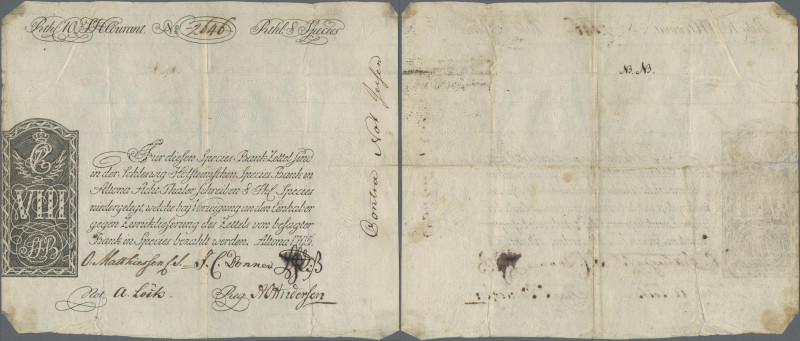 Rthl. 10. SHCourant. No. 2646 Rthl. 8 Species
Für diesen Species-Bank-Zettel sind
in der Schleswig-Holsteinischen Species-Bank in
Altona Acht Thaler, schreiben 8 Rthl. Species
niedergelegt, welche bey Vorzeigung an den Einhaber
gegen Zurücklieferung des Zettels von besagter
Bank in Species bezahlt werden. Altona
VIII
O. Matthiessen J. C. Donner
Not A. Loik. Reg. Andersen
Contra Not
NB. NB.